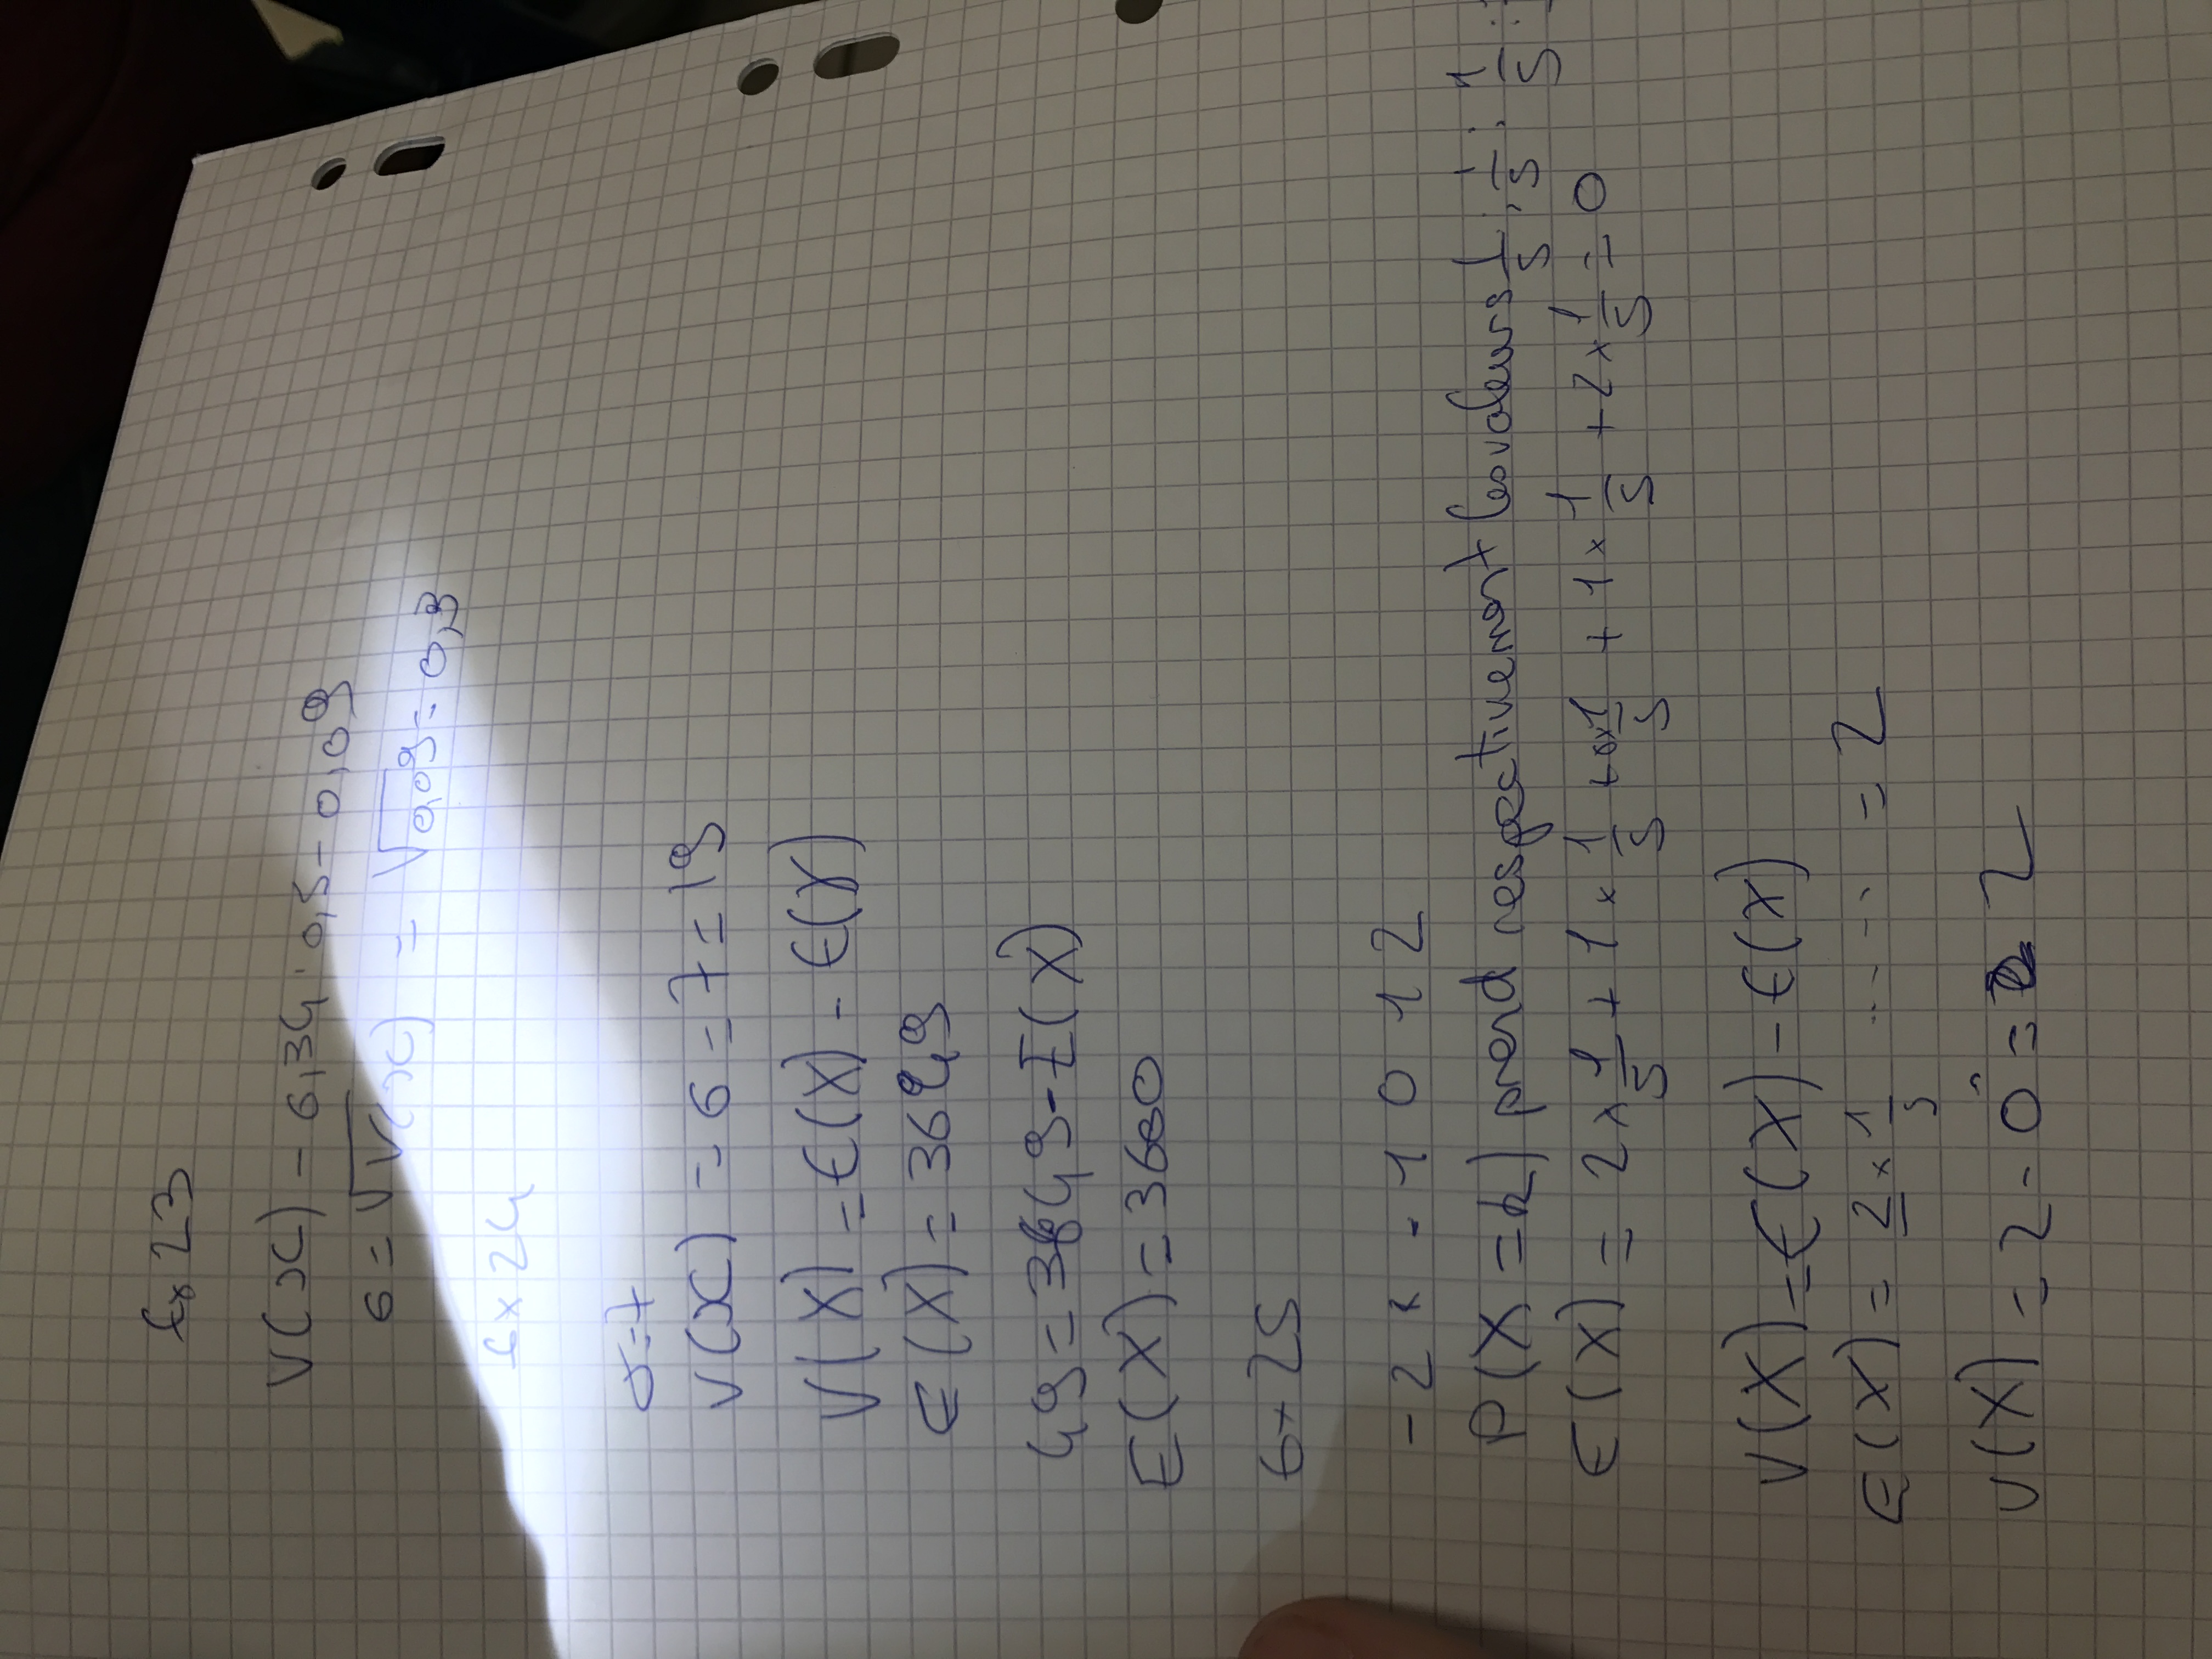 Ex 23
V(x) - 6,34 · 0,5 - 0,09
6 = √V(x) = √0,09 = 0,3
Ex 24
σ = 7
V(x) = 6 = 7 = 19
V(X) = E(X) - E(X)
E(X) = 3649
49 = 3649 - E(X)
E(X) = 3600
Ex 25
-2 x -1 0 1 2
P(X = k) prend respectivement les valeurs 1/5 ; 1/5 ; 1/5 ;
E(X) = 2 × 1/5 + 1 × 1/5 + 0 × 1/5 + 1 × 1/5 + 2 × 1/5 = 0
V(X) = E(X) - E(X)
E(X) = 2 × 1/5 ... ... = 2
V(X) = 2 - 0 = 2